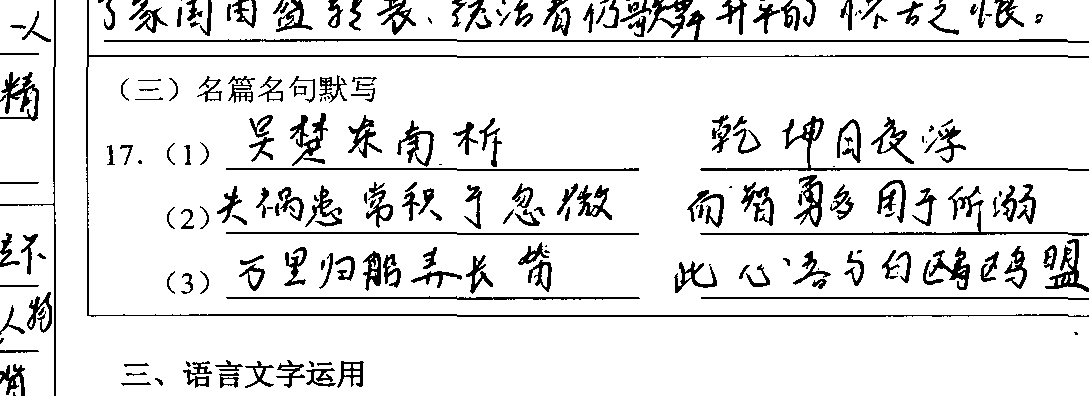 了家国由盛转衰、统治者仍歌舞升平的怀古之恨。
一人
精
（三）名篇名句默写
17.（1）吴楚东南析 乾坤日夜浮
（2）失祸患常积于忽微 而智勇多困于所溺
（3）万里归船弄长笛 此心吾与白鸥鸥盟
人物
三、语言文字运用